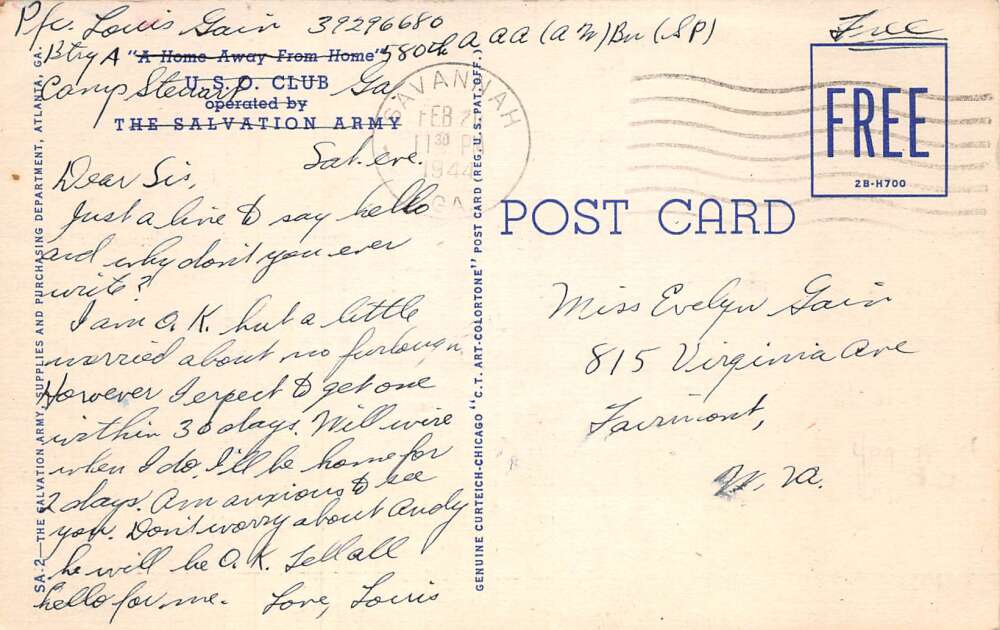 Pfc. Louis Gain 39296680
Btry A 580th A AA (AW) Bn (SP)
Camp Stewart Ga.
"A Home Away From Home"
U. S. O. CLUB
operated by
THE SALVATION ARMY
Sat. eve.
Dear Sis,
Just a line to say hello
and why don't you ever
write?
I am O.K. but a little
worried about no furlough.
However I expect to get one
within 30 days. Will wire
when I do. I'll be home for
2 days. Am anxious to see
you. Don't worry about Andy
he will be O.K. Tell all
hello for me. Love, Louis
SA-2—THE SALVATION ARMY, SUPPLIES AND PURCHASING DEPARTMENT, ATLANTA, GA.
GENUINE CURTEICH-CHICAGO "C. T. ART-COLORTONE" POST CARD (REG. U. S. PAT. OFF.)
SAVANNAH
FEB
11 30 P
1944
GA
Free
FREE
2B-H700
POST CARD
Miss Evelyn Gain
815 Virginia Ave
Fairmont,
W. Va.